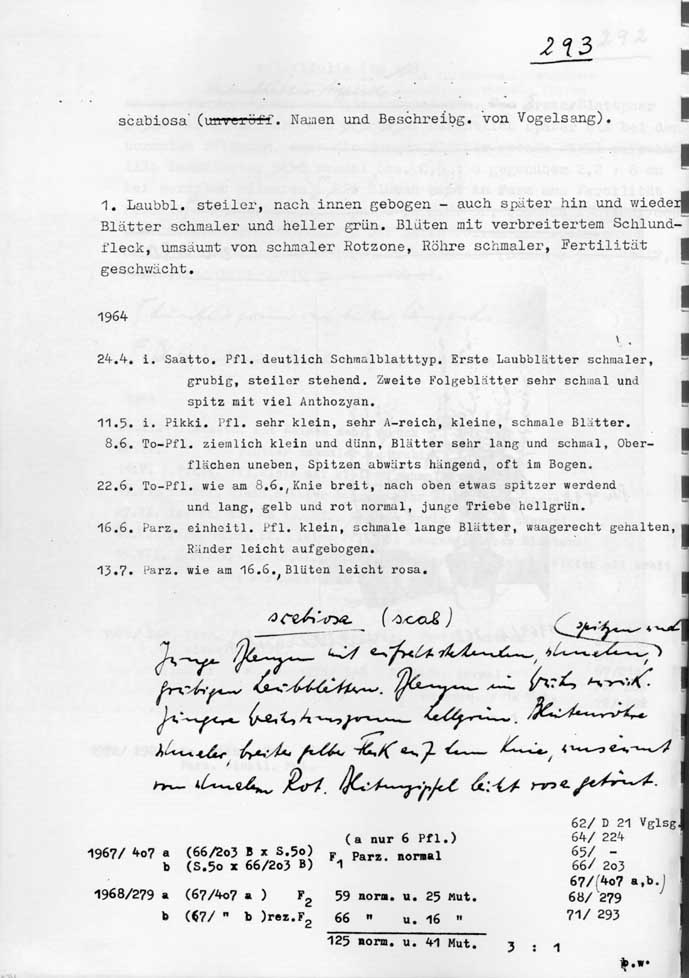 293
292
scabiosa (unveröff. Namen und Beschreibg. von Vogelsang).
1. Laubbl. steiler, nach innen gebogen - auch später hin und wieder
Blätter schmaler und heller grün. Blüten mit verbreitertem Schlund-
fleck, umsäumt von schmaler Rotzone, Röhre schmaler, Fertilität
geschwächt.
1964
24.4. i. Saatto. Pfl. deutlich Schmalblatttyp. Erste Laubblätter schmaler,
grubig, steiler stehend. Zweite Folgeblätter sehr schmal und
spitz mit viel Anthozyan.
11.5. i. Pikki. Pfl. sehr klein, sehr A-reich, kleine, schmale Blätter.
8.6. To-Pfl. ziemlich klein und dünn, Blätter sehr lang und schmal, Ober-
flächen uneben, Spitzen abwärts hängend, oft im Bogen.
22.6. To-Pfl. wie am 8.6., Knie breit, nach oben etwas spitzer werdend
und lang, gelb und rot normal, junge Triebe hellgrün.
16.6. Parz. einheitl. Pfl. klein, schmale lange Blätter, waagerecht gehalten,
Ränder leicht aufgebogen.
13.7. Parz. wie am 16.6., Blüten leicht rosa.
scabiosa (scab)
spitzen und
Junge Pflanzen mit aufrechtstehenden, schmalen,
grubigen Laubblättern. Pflanzen im Wuchs zurück.
Jüngere hellgrün. Blütenröhre
schmaler, breiter gelber Fleck auf dem Knie, umsäumt
von schmalem Rot. Blütenzipfel leicht rosa getönt.
1967/ 407 a (66/203 B x S.50) (a nur 6 Pfl.)
b (S.50 x 66/203 B) F1 Parz. normal
1968/279 a (67/407 a ) F2 59 norm. u. 25 Mut.
b (67/ " b )rez.F2 66 " u. 16 "
125 norm. u. 41 Mut. 3 : 1
62/ D 21 Vglsg.
64/ 224
65/ -
66/ 203
67/(407 a,b.)
68/ 279
71/ 293
b.w.